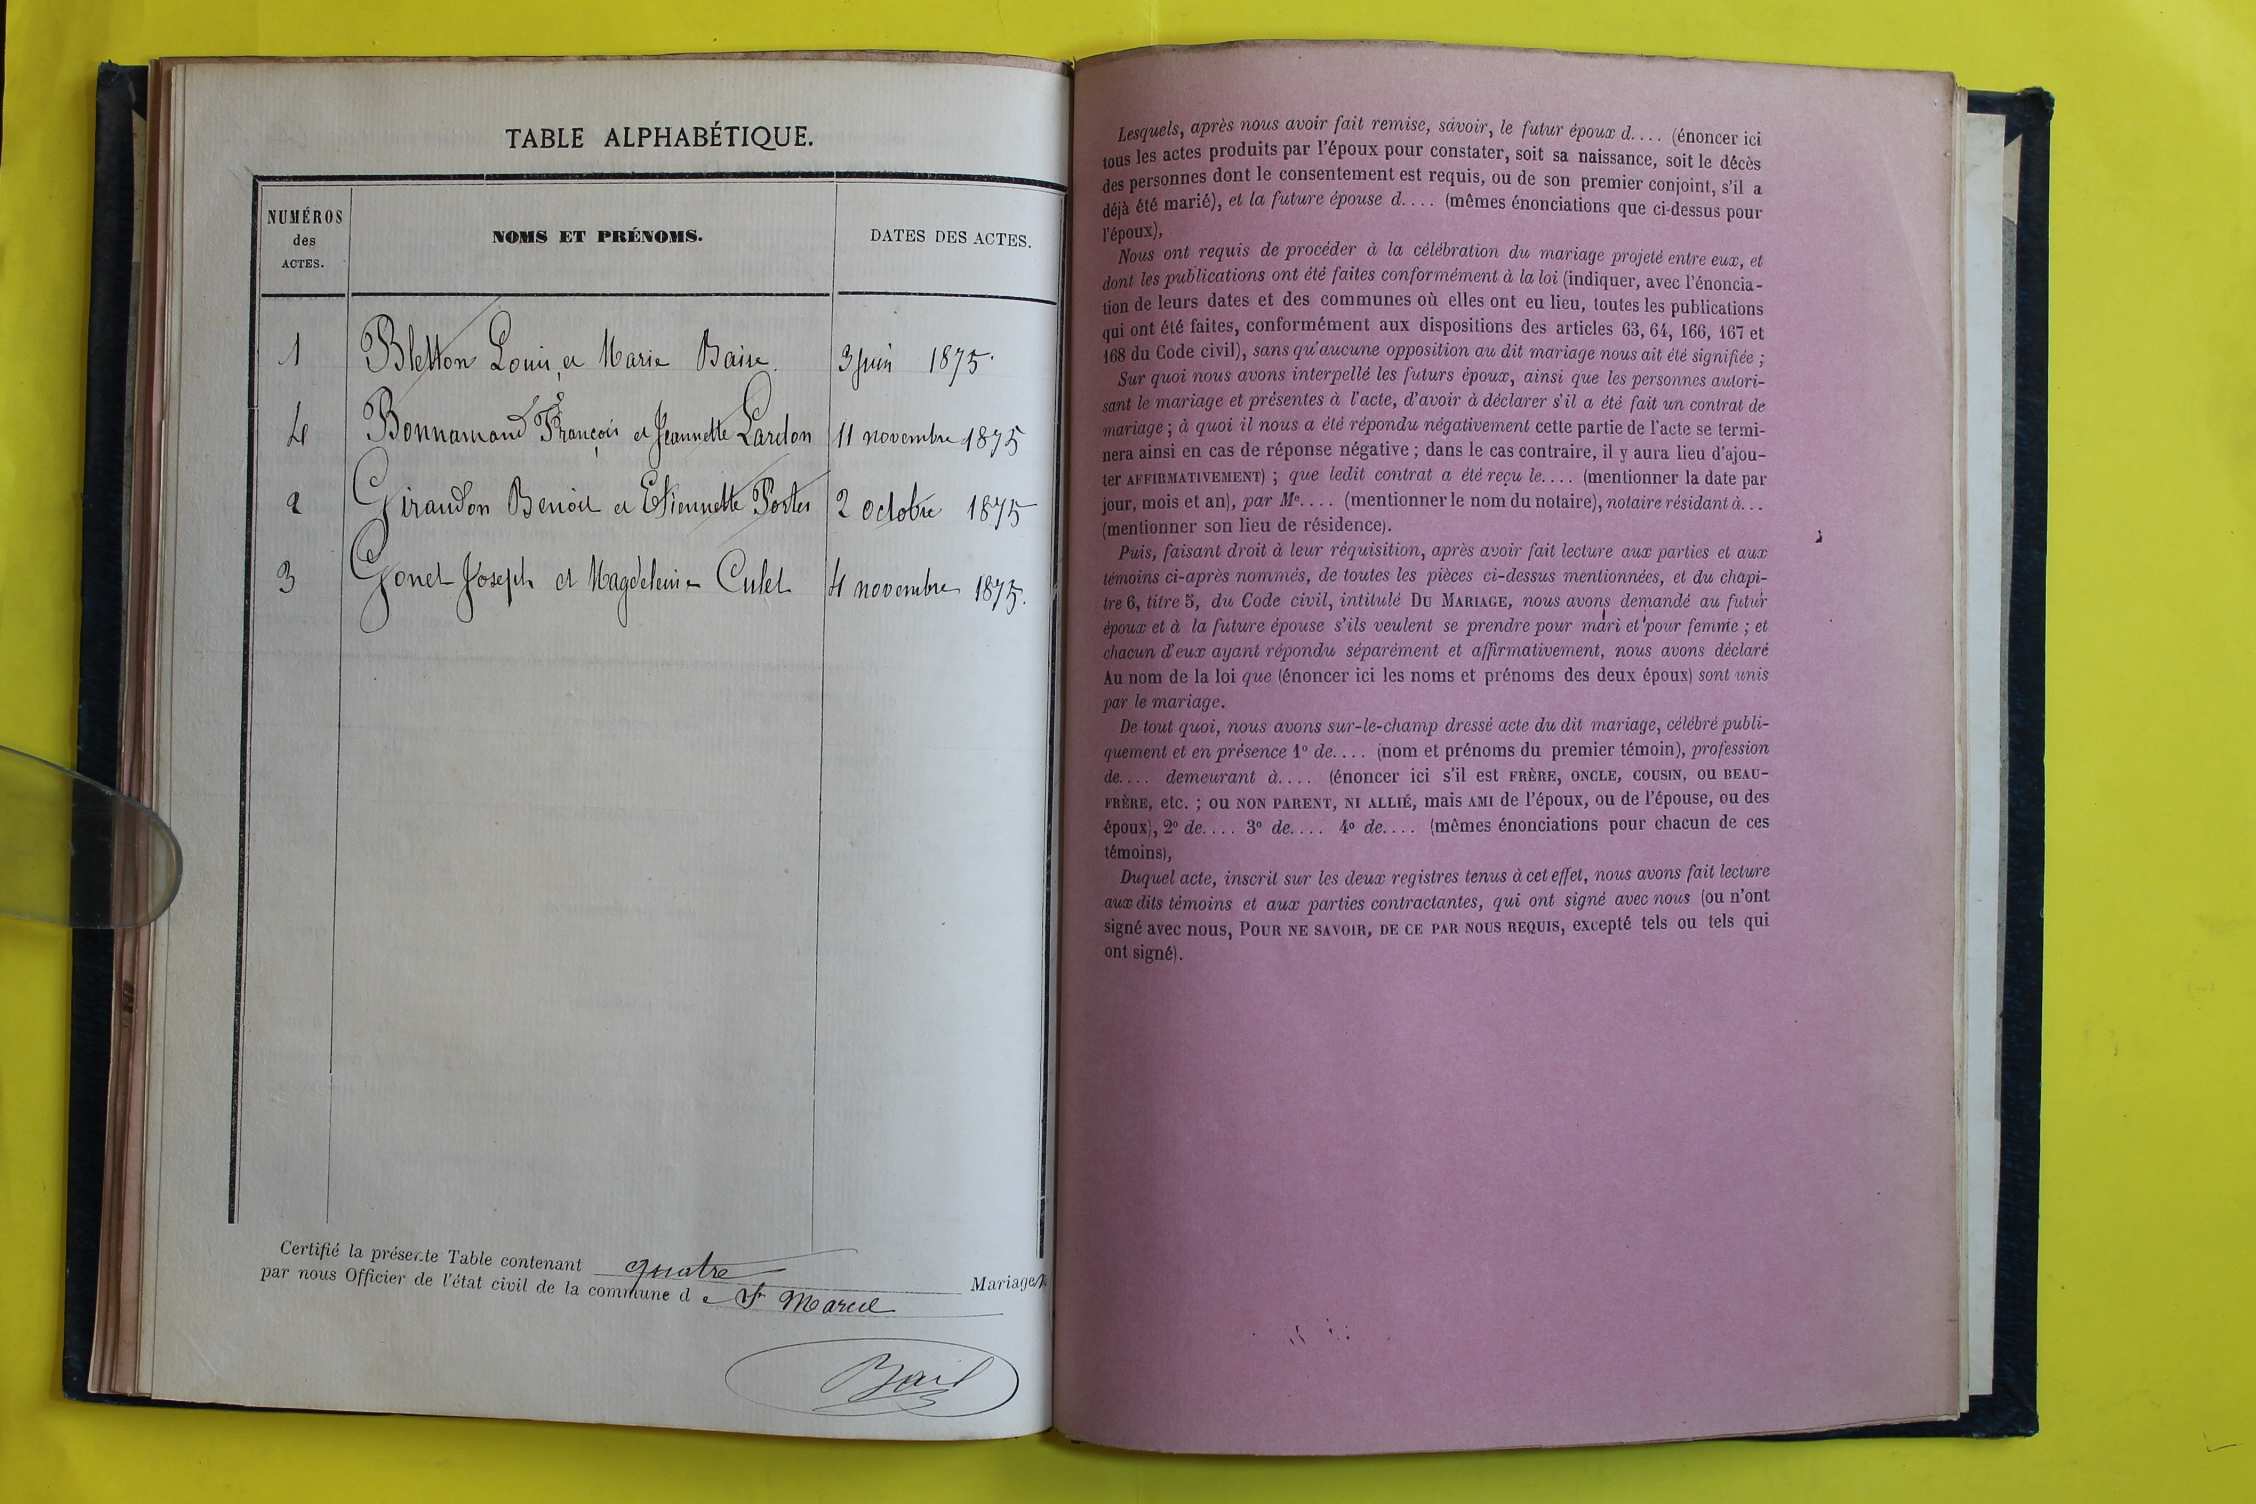 TABLE ALPHABÉTIQUE.
NUMÉROS
des
ACTES.
NOMS ET PRÉNOMS.
DATES DES ACTES.
1 Bletton Louis, et Marie Baise. 3 Juin 1875.
4 Bonnamand François et Jeannette Lardon 11 novembre 1875
2 Giraudon Benoit et Etiennette Portes 2 octobre 1875
3 Gonet Joseph et Magdeleine Culet 4 novembre 1875.
Certifié la présente Table contenant quatre Mariages
par nous Officier de l'état civil de la commune de St Marcel
Bail
Lesquels, après nous avoir fait remise, savoir, le futur époux d.... (énoncer ici
tous les actes produits par l'époux pour constater, soit sa naissance, soit le décès
des personnes dont le consentement est requis, ou de son premier conjoint, s'il a
déjà été marié), et la future épouse d.... (mêmes énonciations que ci-dessus pour
l'époux),
Nous ont requis de procéder à la célébration du mariage projeté entre eux, et
dont les publications ont été faites conformément à la loi (indiquer, avec l'énoncia-
tion de leurs dates et des communes où elles ont eu lieu, toutes les publications
qui ont été faites, conformément aux dispositions des articles 63, 64, 166, 167 et
168 du Code civil), sans qu'aucune opposition au dit mariage nous ait été signifiée ;
Sur quoi nous avons interpellé les futurs époux, ainsi que les personnes autori-
sant le mariage et présentes à l'acte, d'avoir à déclarer s'il a été fait un contrat de
mariage ; à quoi il nous a été répondu négativement cette partie de l'acte se termi-
nera ainsi en cas de réponse négative ; dans le cas contraire, il y aura lieu d'ajou-
ter AFFIRMATIVEMENT) ; que ledit contrat a été reçu le.... (mentionner la date par
jour, mois et an), par Me.... (mentionner le nom du notaire), notaire résidant à...
(mentionner son lieu de résidence).
Puis, faisant droit à leur réquisition, après avoir fait lecture aux parties et aux
témoins ci-après nommés, de toutes les pièces ci-dessus mentionnées, et du chapi-
tre 6, titre 5, du Code civil, intitulé DU MARIAGE, nous avons demandé au futur
époux et à la future épouse s'ils veulent se prendre pour mari et pour femme ; et
chacun d'eux ayant répondu séparément et affirmativement, nous avons déclaré
Au nom de la loi que (énoncer ici les noms et prénoms des deux époux) sont unis
par le mariage.
De tout quoi, nous avons sur-le-champ dressé acte du dit mariage, célébré publi-
quement et en présence 1º de.... (nom et prénoms du premier témoin), profession
de.... demeurant à.... (énoncer ici s'il est FRÈRE, ONCLE, COUSIN, ou BEAU-
FRÈRE, etc. ; ou NON PARENT, NI ALLIÉ, mais AMI de l'époux, ou de l'épouse, ou des
époux), 2º de.... 3º de.... 4º de.... (mêmes énonciations pour chacun de ces
témoins),
Duquel acte, inscrit sur les deux registres tenus à cet effet, nous avons fait lecture
aux dits témoins et aux parties contractantes, qui ont signé avec nous (ou n'ont
signé avec nous, POUR NE SAVOIR, DE CE PAR NOUS REQUIS, excepté tels ou tels qui
ont signé).